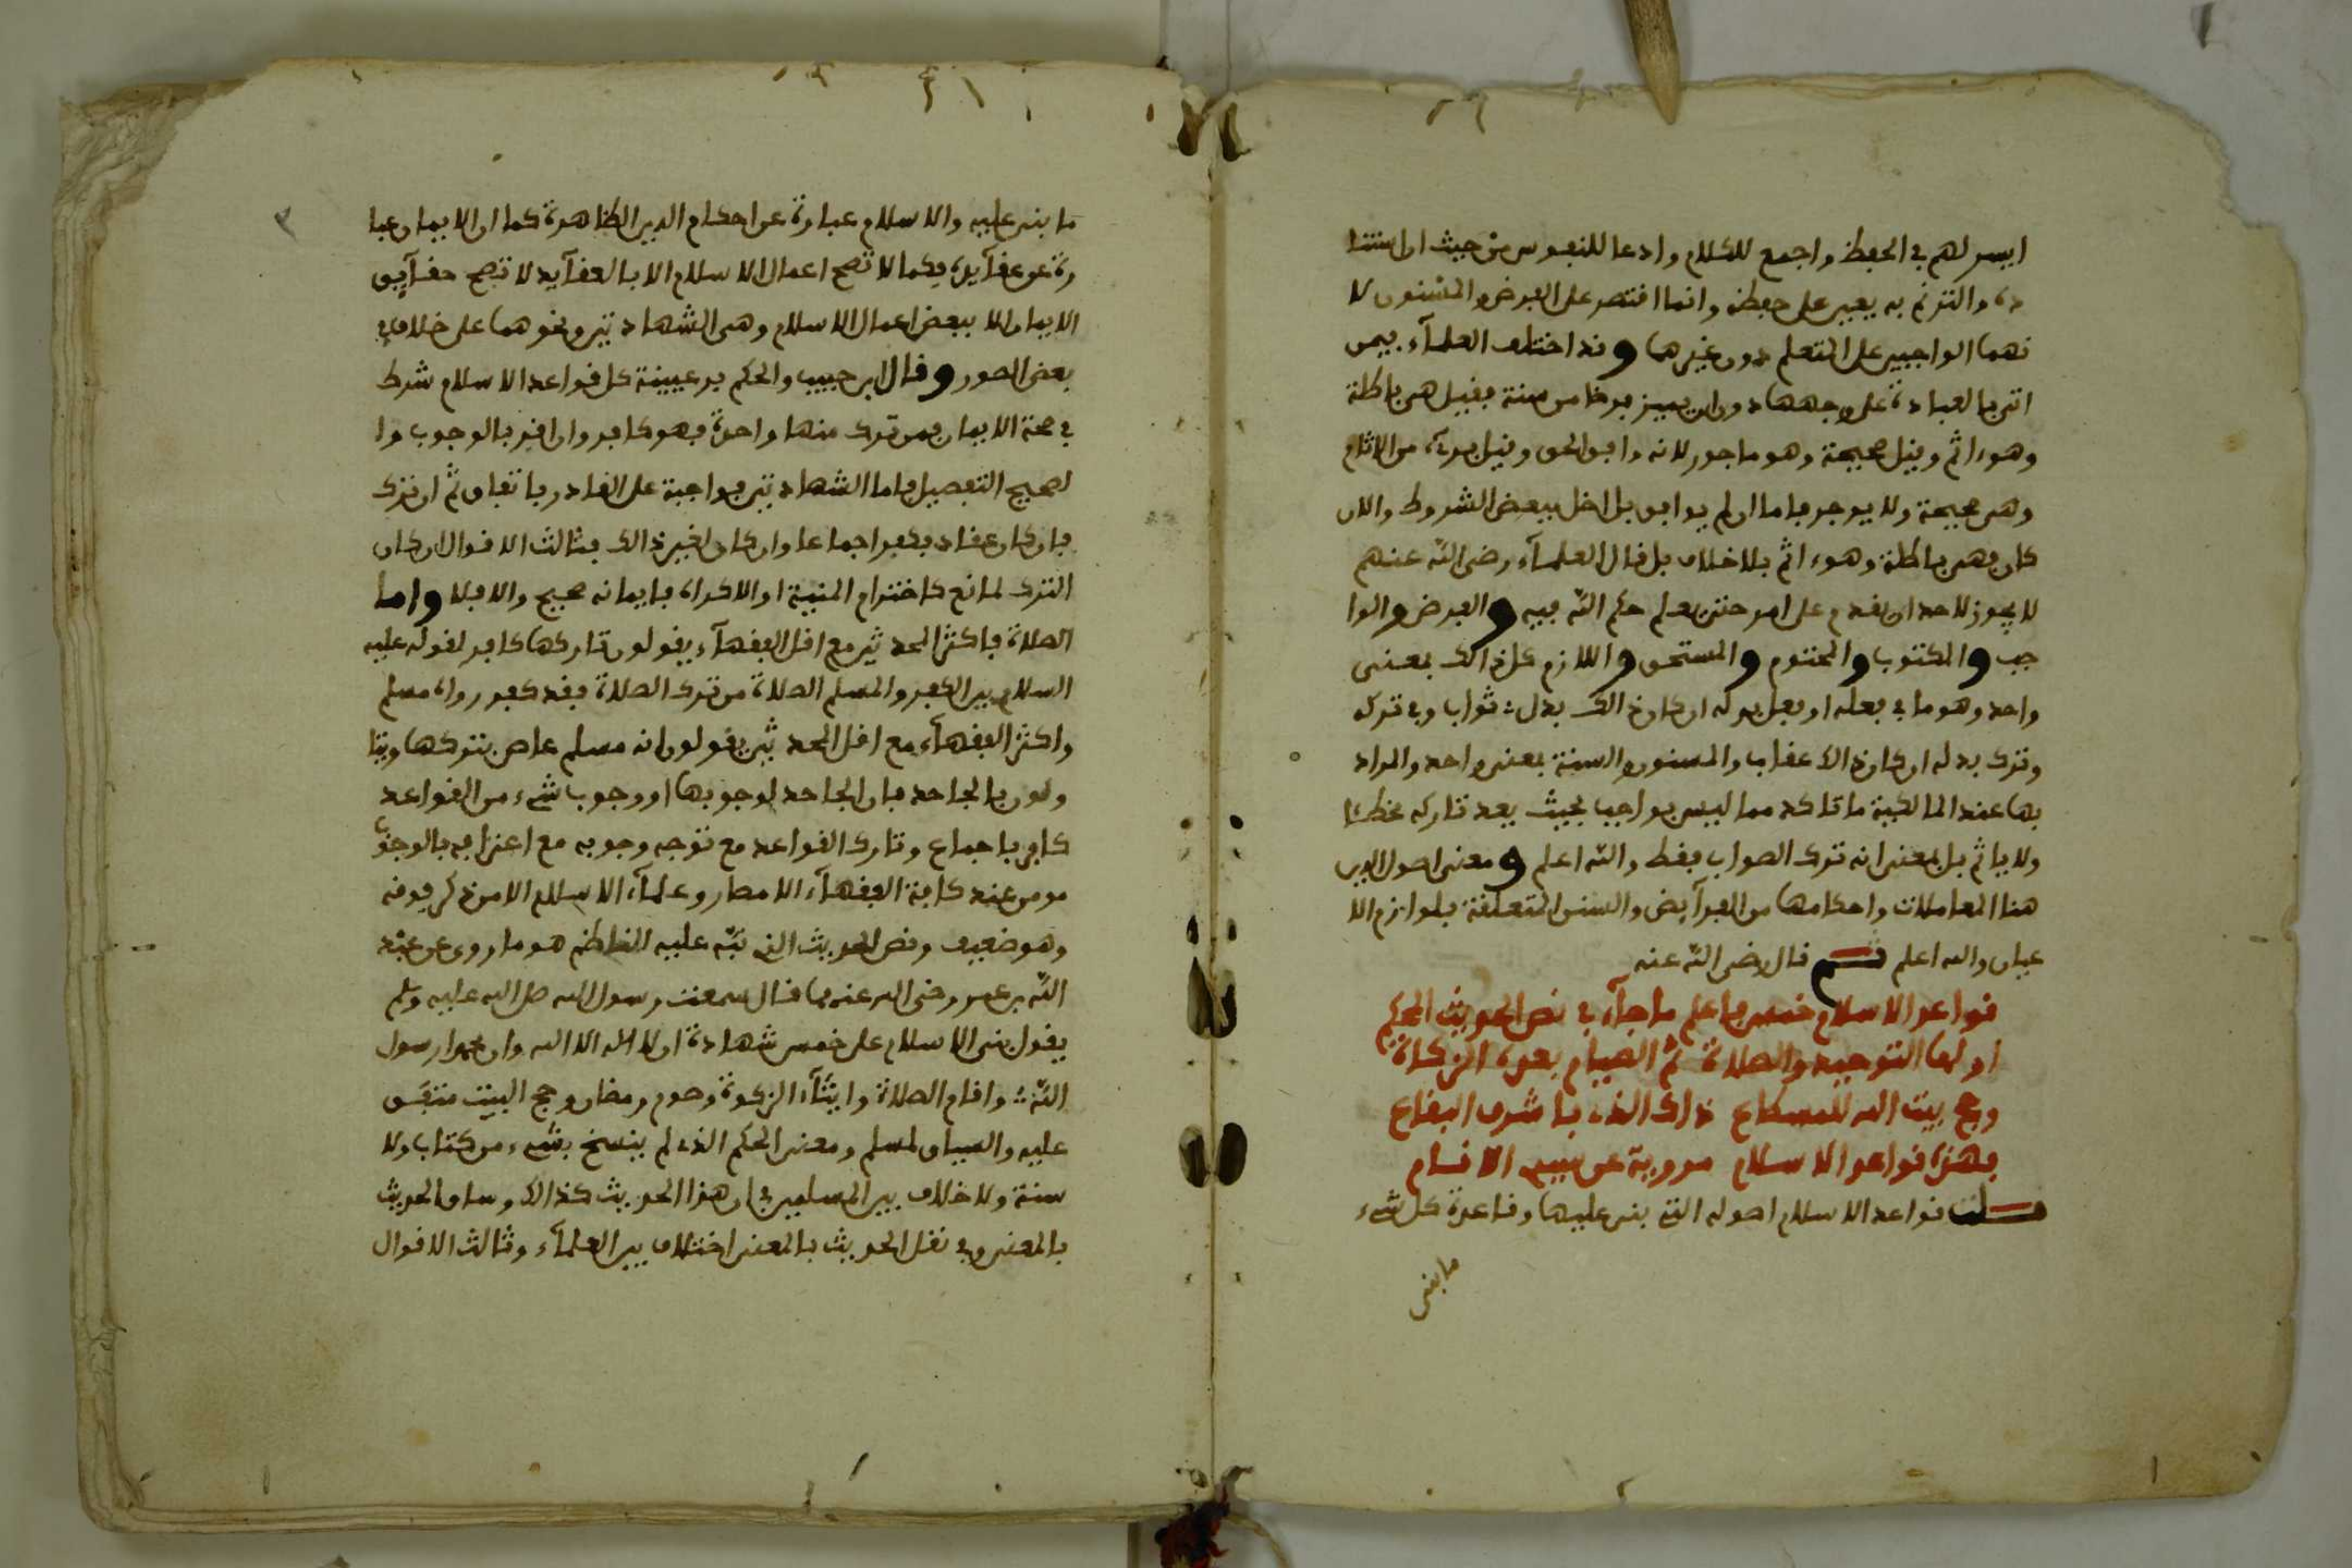 ايسر لهم في الحفظ واجمع للكلام وادعا للنفوس من حيث ان انشا
ده والترنم به يعين على حفظه وانما اقتصر على الفرض والمسنون لا
نهما الواجبين على المتعلم دون غيرهما وقد اختلف العلمآء فيمن
اتى بالعبادة على وجهها دون ان يميز فرضا من سنة فقيل هي باطلة
وهو ءاثم وقيل صحيحة وهو ماجور لانه وافق الحق وقيل من الاثام
وهي صحيحة ولا يوجر فاما ان لم يوافق بل اخل ببعض الشروط والار
كان فهي باطلة وهو ءاثم بلا خلاف بل قال العلمآء رضي الله عنهم
لا يجوز لاحد ان يقدم على امر حتى يعلم حكم الله فيه والفرض والوا
جب والمكتوب والمحتوم والمستحق واللازم كل ذالك بمعنى
واحد وهو ما في فعله او فعل بدله ان كان ذالك بدل ثواب وفي تركه
وترك بدله ان كان ذالك عقاب والمسنون والسنة بمعنى واحد والمراد
بها عند المالكية ما تاكد مما ليس بواجب بحيث يعد تاركه مخطئا
ولا ياثم بل بمعنى انه ترك الصواب فقط والله اعلم ومعنى اصول الدين
هنا المعاملات واحكامها من الفرآيض والسنن المتعلقة بلوازم الا
عيان والله اعلم ثم قال رضي الله عنه
قواعد الاسلام خمس فاعلم ما جآء في نص الحديث المحكم
اولها التوحيد والصلاة ثم الصيام بعده الزكاة
وحج بيت الله للمسطاع ذاك الذي باشرف البقاع
فهذه قواعد الاسلام مروية عن سيد الانام
قلت قواعد الاسلام اصوله التي بني عليها وقاعدة كل شيء
ما بني
ما بني عليه والاسلام عبارة عن احكام الدين الظاهرة كما ان الايمان عبا
رة عن عقآيده فكما لا تصح اعمال الاسلام الا بالعقآيد لا تصح عقآيد
الايمان الا ببعض اعمال الاسلام وهي الشهادتين ونحوهما على خلاف في
بعض الصور وقال ابن حبيب والحكم بن عيينة كل قواعد الاسلام شرط
في صحة الايمان فمن ترك منها واحدة فهو كافر وان اقر بالوجوب وا
لصحيح التفصيل فاما الشهادتين فواجبة على القادر باتفاق ثم ان ترك
فان كان عنادا فكفر اجماعا وان كان لغير ذالك فثالث الاقوال ان كان
الترك لمانع كاخترام المنية او الاكراه فايمانه صحيح والا فلا واما
الصلاة فاكثر المحدثين مع اقل الفقهآء يقولون تاركها كافر لقوله عليه
السلام بين الكفر والمسلم الصلاة من ترك الصلاة فقد كفر رواه مسلم
واكثر الفقهآء مع اقل المحدثين يقولون انه مسلم عاص بتركها ويتا
ولون بالجاحد فان الجاحد لوجوبها او وجوب شيء من القواعد
كافر باجماع وتارك القواعد مع توجه وجوبه مع اعترافه بالوجوب
مومن عند كافة الفقهآء الامصار وعلمآء الاسلام الا من ذكر فوقه
وهو ضعيف ونص الحديث الذي نبه عليه الناظم هو ما روي عن عبد
الله بن عمر رضي الله عنهما قال سمعت رسول الله صلى الله عليه وسلم
يقول بني الاسلام على خمس شهادة ان لا اله الا الله وان محمدا رسول
الله واقام الصلاة وايتآء الزكوة وصوم رمضان وحج البيت متفق
عليه والسياق لمسلم ومعنى المحكم الذي لم ينسخ بشيء من كتاب ولا
سنة ولا خلاف بين المسلمين في ان هذا الحديث كذالك وساق الحديث
بالمعنى وفي نقل الحديث بالمعنى اختلاف بين العلمآء وثالث الاقوال